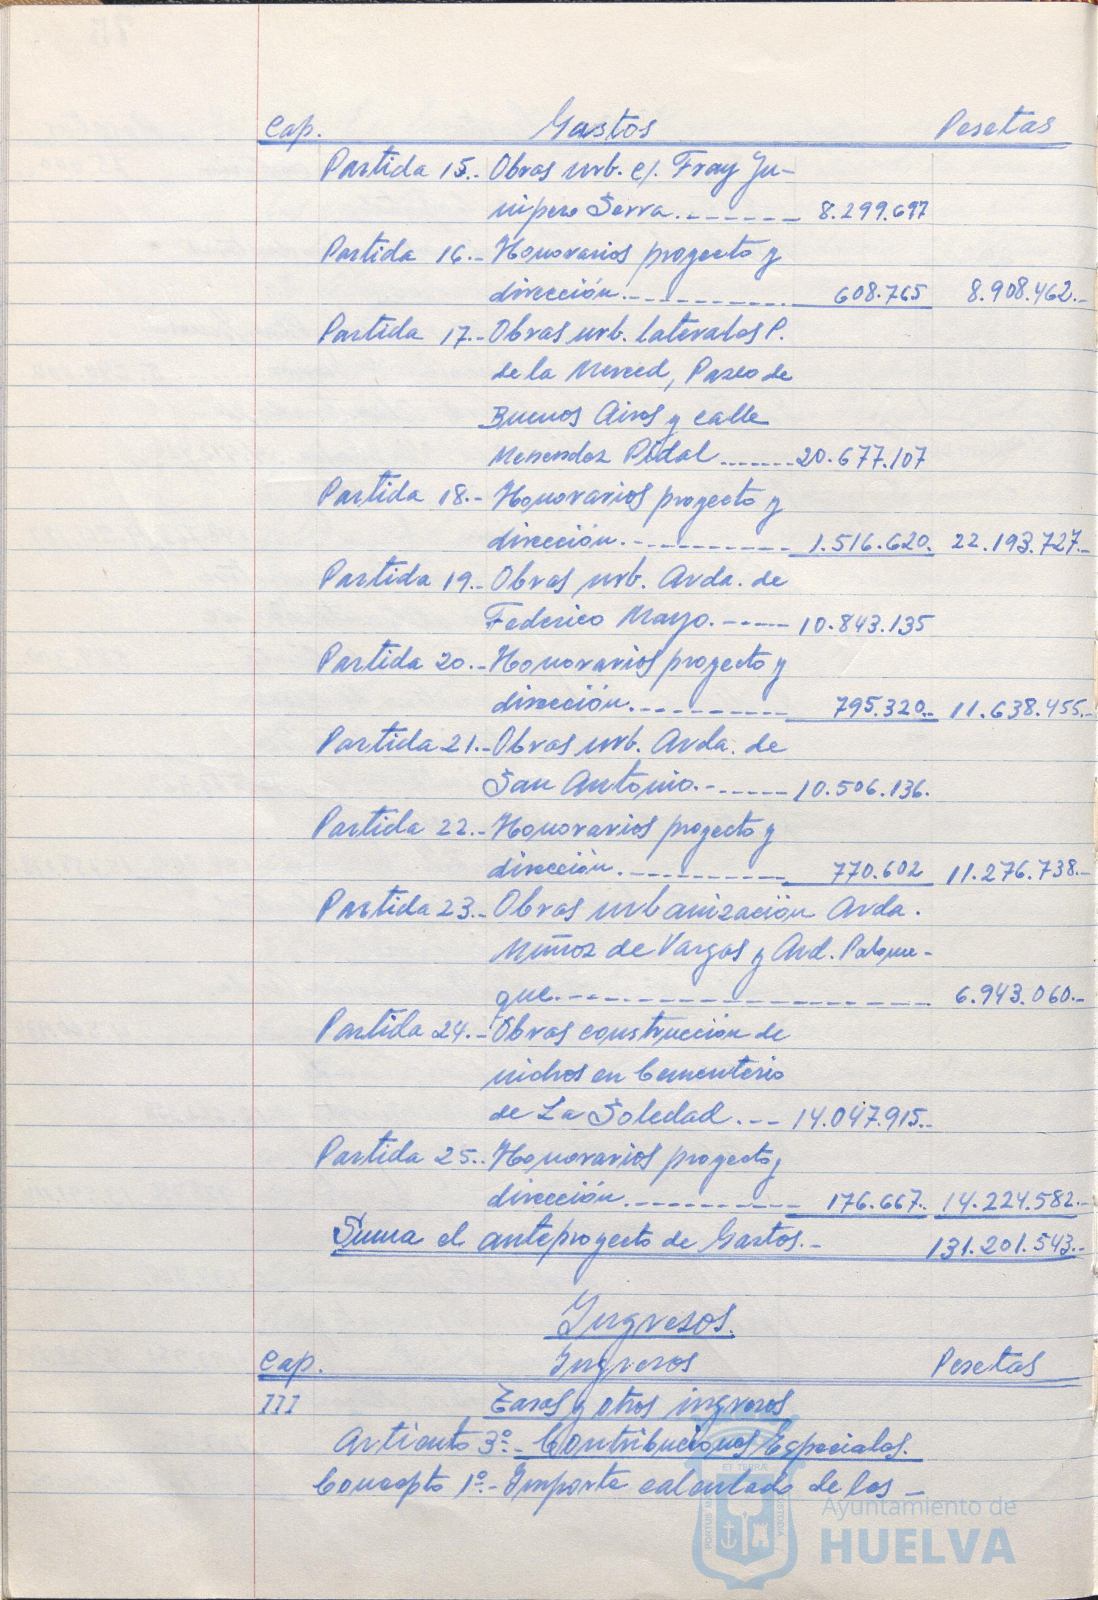 Cap. Gastos Pesetas
Partida 15.- Obras urb. c/. Fray Ju-
nipero Serra.------- 8.299.697
Partida 16.- Honorarios proyecto y
dirección.---------- 608.765 8.908.462.-
Partida 17.- Obras urb. laterales P.
de la Merced, Paseo de
Buenos Aires y calle
Menendez Pidal ------ 20.677.107
Partida 18.- Honorarios proyecto y
dirección.---------- 1.516.620. 22.193.727.-
Partida 19.- Obras urb. Avda. de
Federico Mayo.----- 10.843.135
Partida 20.- Honorarios proyecto y
dirección.---------- 795.320.- 11.638.455.-
Partida 21.- Obras urb. Avda. de
San Antonio.------ 10.506.136.
Partida 22.- Honorarios proyecto y
dirección.---------- 770.602 11.276.738.-
Partida 23.- Obras urbanización Avda.
Muñoz de Vargas y Avd. Palome-
que.-------------------- 6.943.060.-
Partida 24.- Obras construcción de
nichos en Cementerio
de La Soledad.--- 14.047.915.-
Partida 25.- Honorarios proyecto y
dirección.---------- 176.667. 14.224.582.-
Suma el anteproyecto de Gastos.- 131.201.543.-
Ingresos.
Cap. Ingresos Pesetas
III Tasas y otros ingresos
Articulo 3º.- Contribuciones Especiales.
Concepto 1º.- Importe calculado de los -
PORTUS MARIS ET TERRAE CUSTODIA
Ayuntamiento de
HUELVA